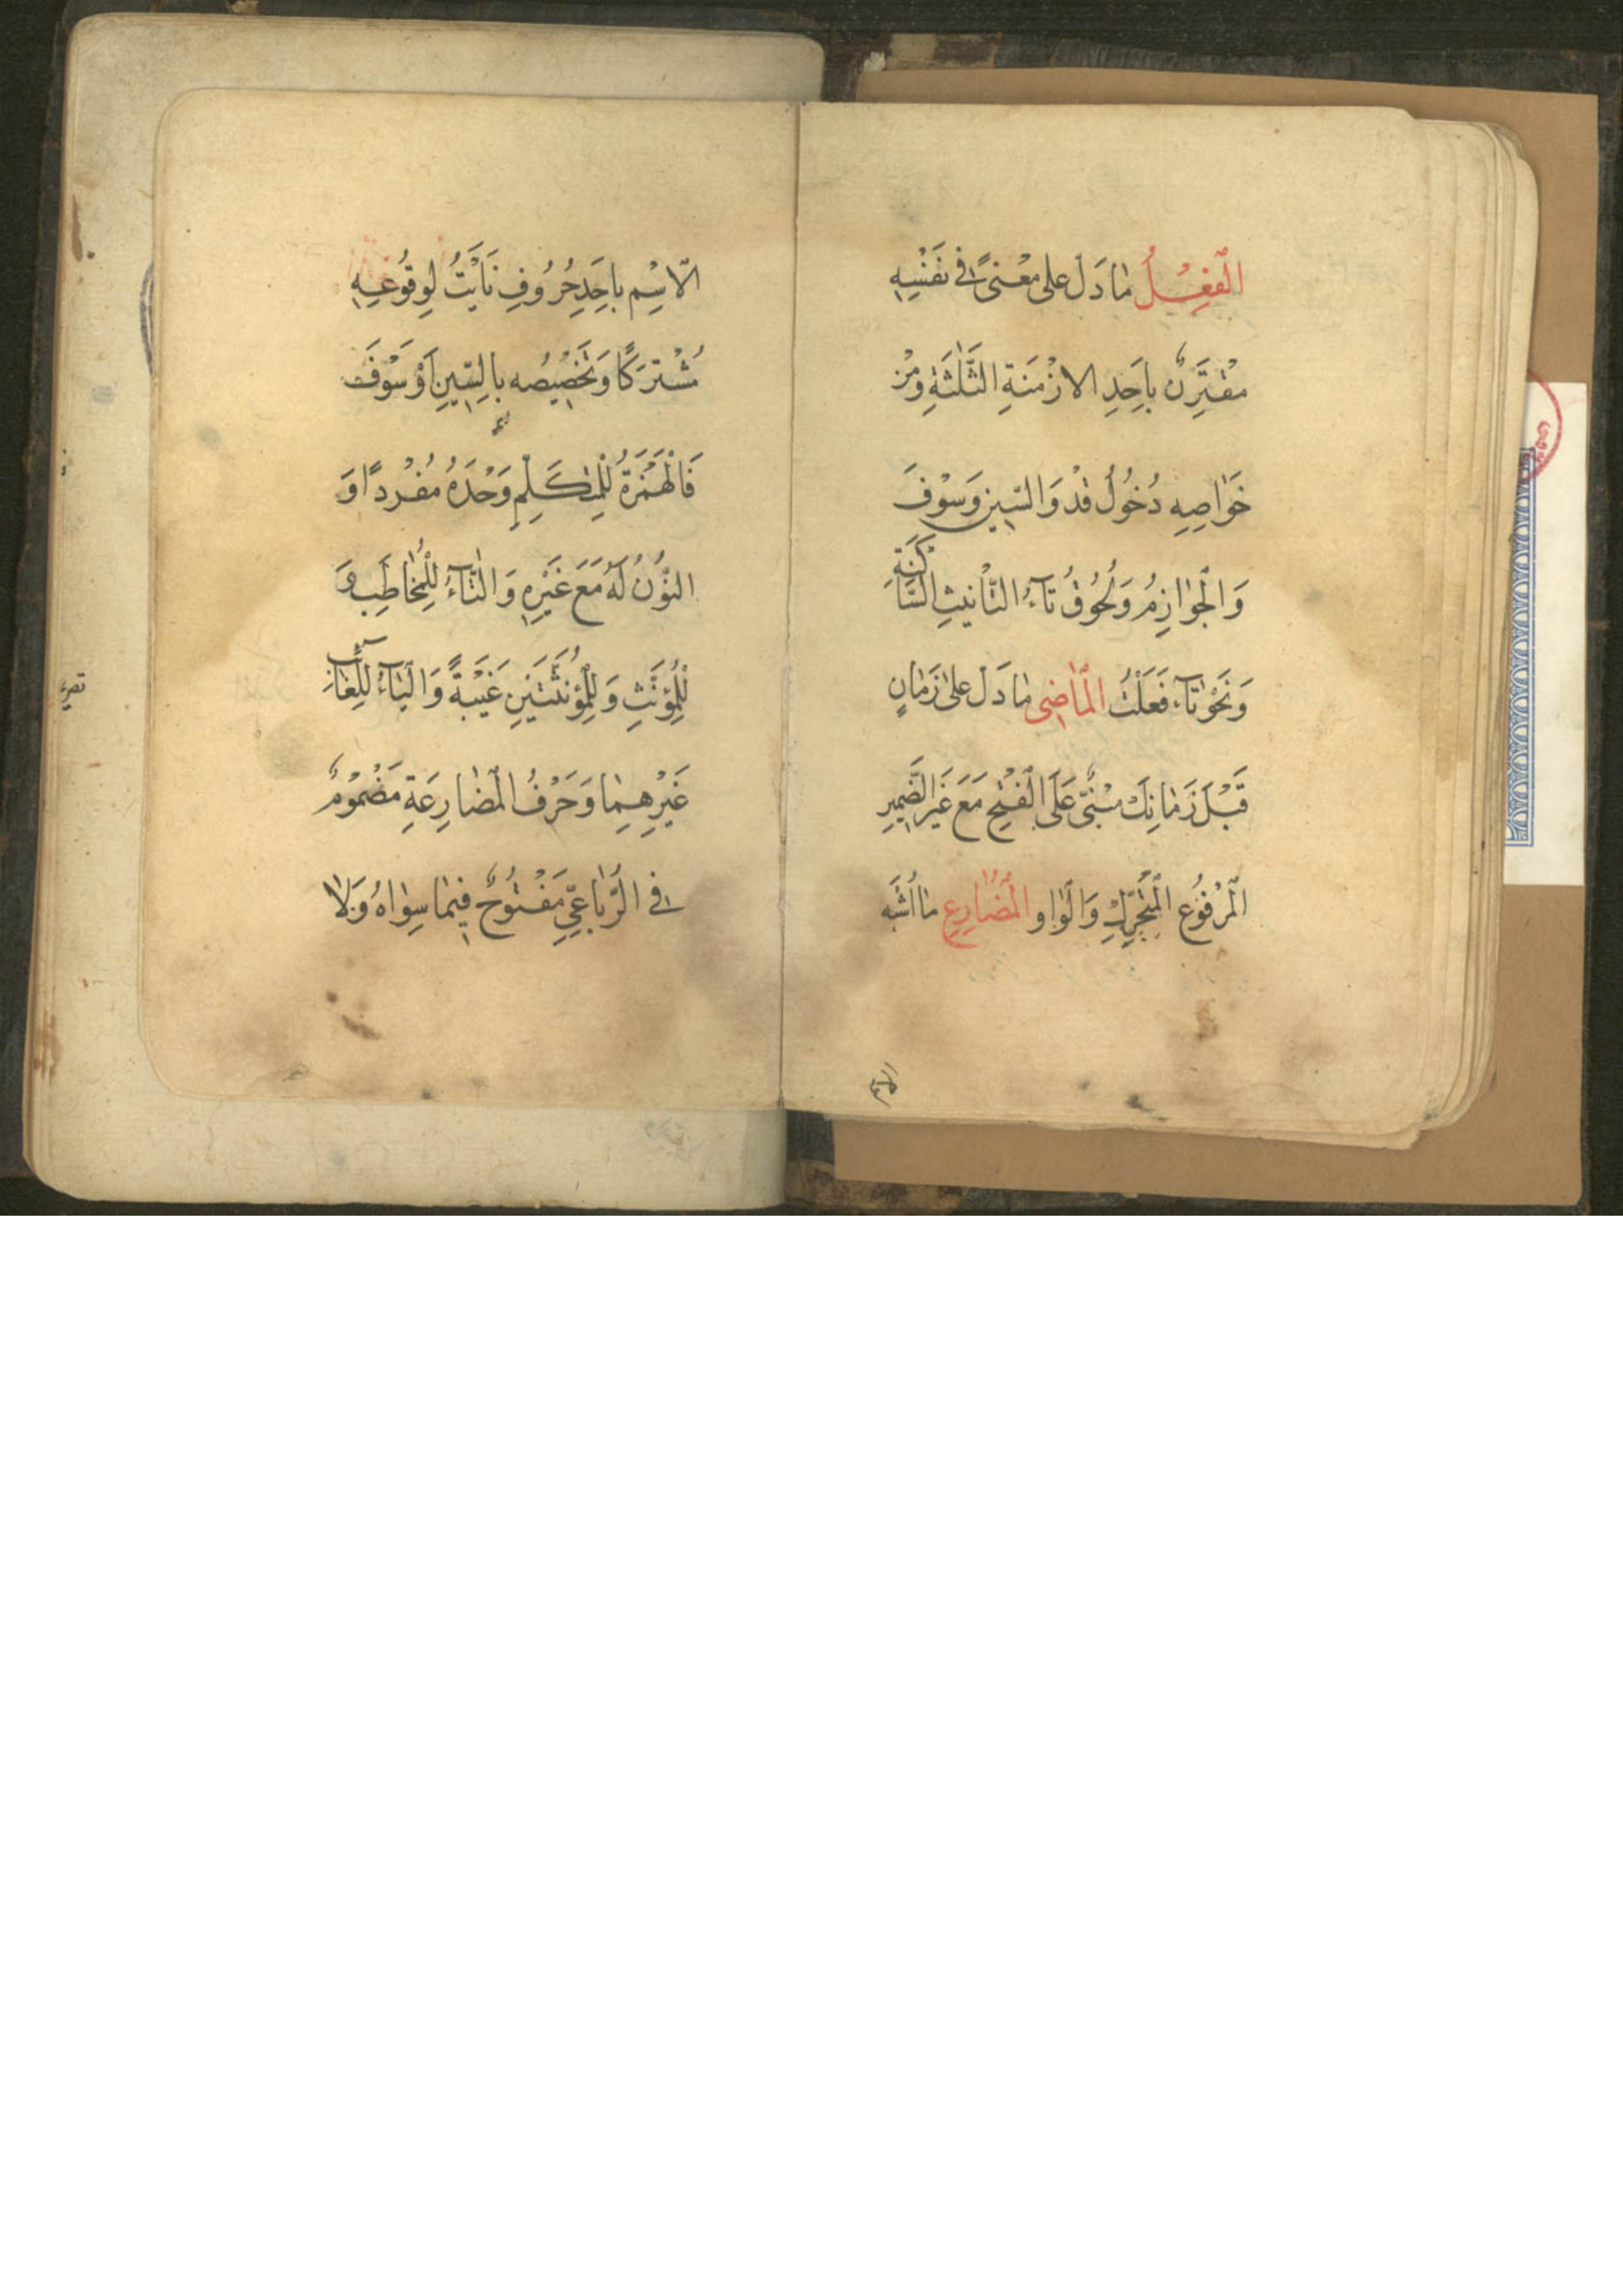 اَلْفِعْلُ مٰا دَلَّ عَلى مَعْنىً فى نَفْسِهِ
مُقْتَرِنٌ بِاَحَدِ الازْمِنَةِ الثَّلٰثَةِ وَمِنْ
خَوٰاصِهِ دُخُولُ قَدْ وَالسّينِ وَسَوْفَ
وَالْجَوٰازِمُ وَلُحُوقُ تآءُ التَّاْنيثِ السّٰاكِنَةِ
وَنَحْوُ تآءِ فَعَلْتُ اَلْمٰاضى مٰا دَلَّ عَلىٰ زَمٰانٍ
قَبْلَ زَمٰانِكَ مَبْنىٌّ عَلَى الْفَتْحِ مَعَ غَيْرِ الضَّميرِ
الْمَرْفُوعِ الْمُتَحَرِّكِ وَالْوٰاوِ اَلْمُضٰارِعِ مٰا اَشْبَهَ
الاسم
الاِّسْمِ بِاَحَدِ حُرُوفِ نَاَيْتُ لِوُقُوعِهِ
مُشْتَرَكًا وَتَخْصيصُه بِالسّينِ اَوْ سَوْفَ
فَالْهَمْزَةُ لِلْمُتَكَلِّمِ وَحْدَهُ مُفْرَدًا وَ
النُّونُ لَهُ مَعَ غَيْرِهِ وَالتّٰآءُ لِلْمُخٰاطَبِ وَ
لِلْمُؤَنَّثِ وَلِلْمُؤَنَّثَيْنِ غَيْبَةً وَالْيٰآءُ لِلْغٰائِبِ
غَيْرِهِمٰا وَحَرْفُ الْمُضٰارِعَةِ مَضْمُومٌ
فِى الرُّبٰاعِىِّ مَفْتُوحٌ فيمٰا سِوٰاهُ وَلاٰ